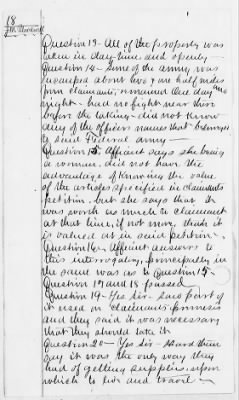 18
Question 13 - All of the property was
taken in day time and openly -
Question 14 - Some of the army was
incamped about two & one half miles
from claimants, remained one day and
night - had no fight near there
before the taking - did not know
any of the officers names that belonged
to said Federal army -
Question 15 - Affiant says she being
a woman, did not have the
advantage of knowing the value
of the articles specified in claimants
petition, but she says that it
was worth as much to claimant
at that time, if not more, than it
is valued at in said petition -
Question 16 - Affiant answers to
this interrogatory, principally in
the same was as to Question 15 -
Question 17 and 18 passed
Question 19 - Yes Sir - Saw part of
it used on claimants premises
and they said it was necessary
that they should take it
Question 20 - Yes Sir - Heard them
say it was the only way they
had of getting supplies upon
which to live and travel -